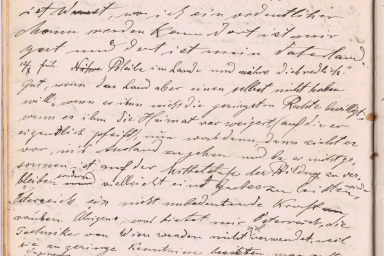 ist Wurst, wo ich ein ordentlicher
Mann werden kann dort ist mir
gut und dort ist mein Vaterland
Bleibe im Lande und nähre dich redlich.
Gut, wenn das Land aber einen selbst nicht haben
will, wenn es ihm nicht die geringsten Rechte bewilligt,
wenn es ihm die Heimat verweigert, auf die er
eigentlich pfeift, nun was dann, dann zieht er
vor, ins Ausland zu gehen und da er nicht
auf der Mittelstufe der Bildung zu ver-
bleiben sondern vielleicht
Österreich ein nicht unbedeutende Kraft
rauben. Übrigens, was bietet mir Österreich, die
Techniker von Wien werden nicht verwendet, weil
sie zu geringe Kenntnisse